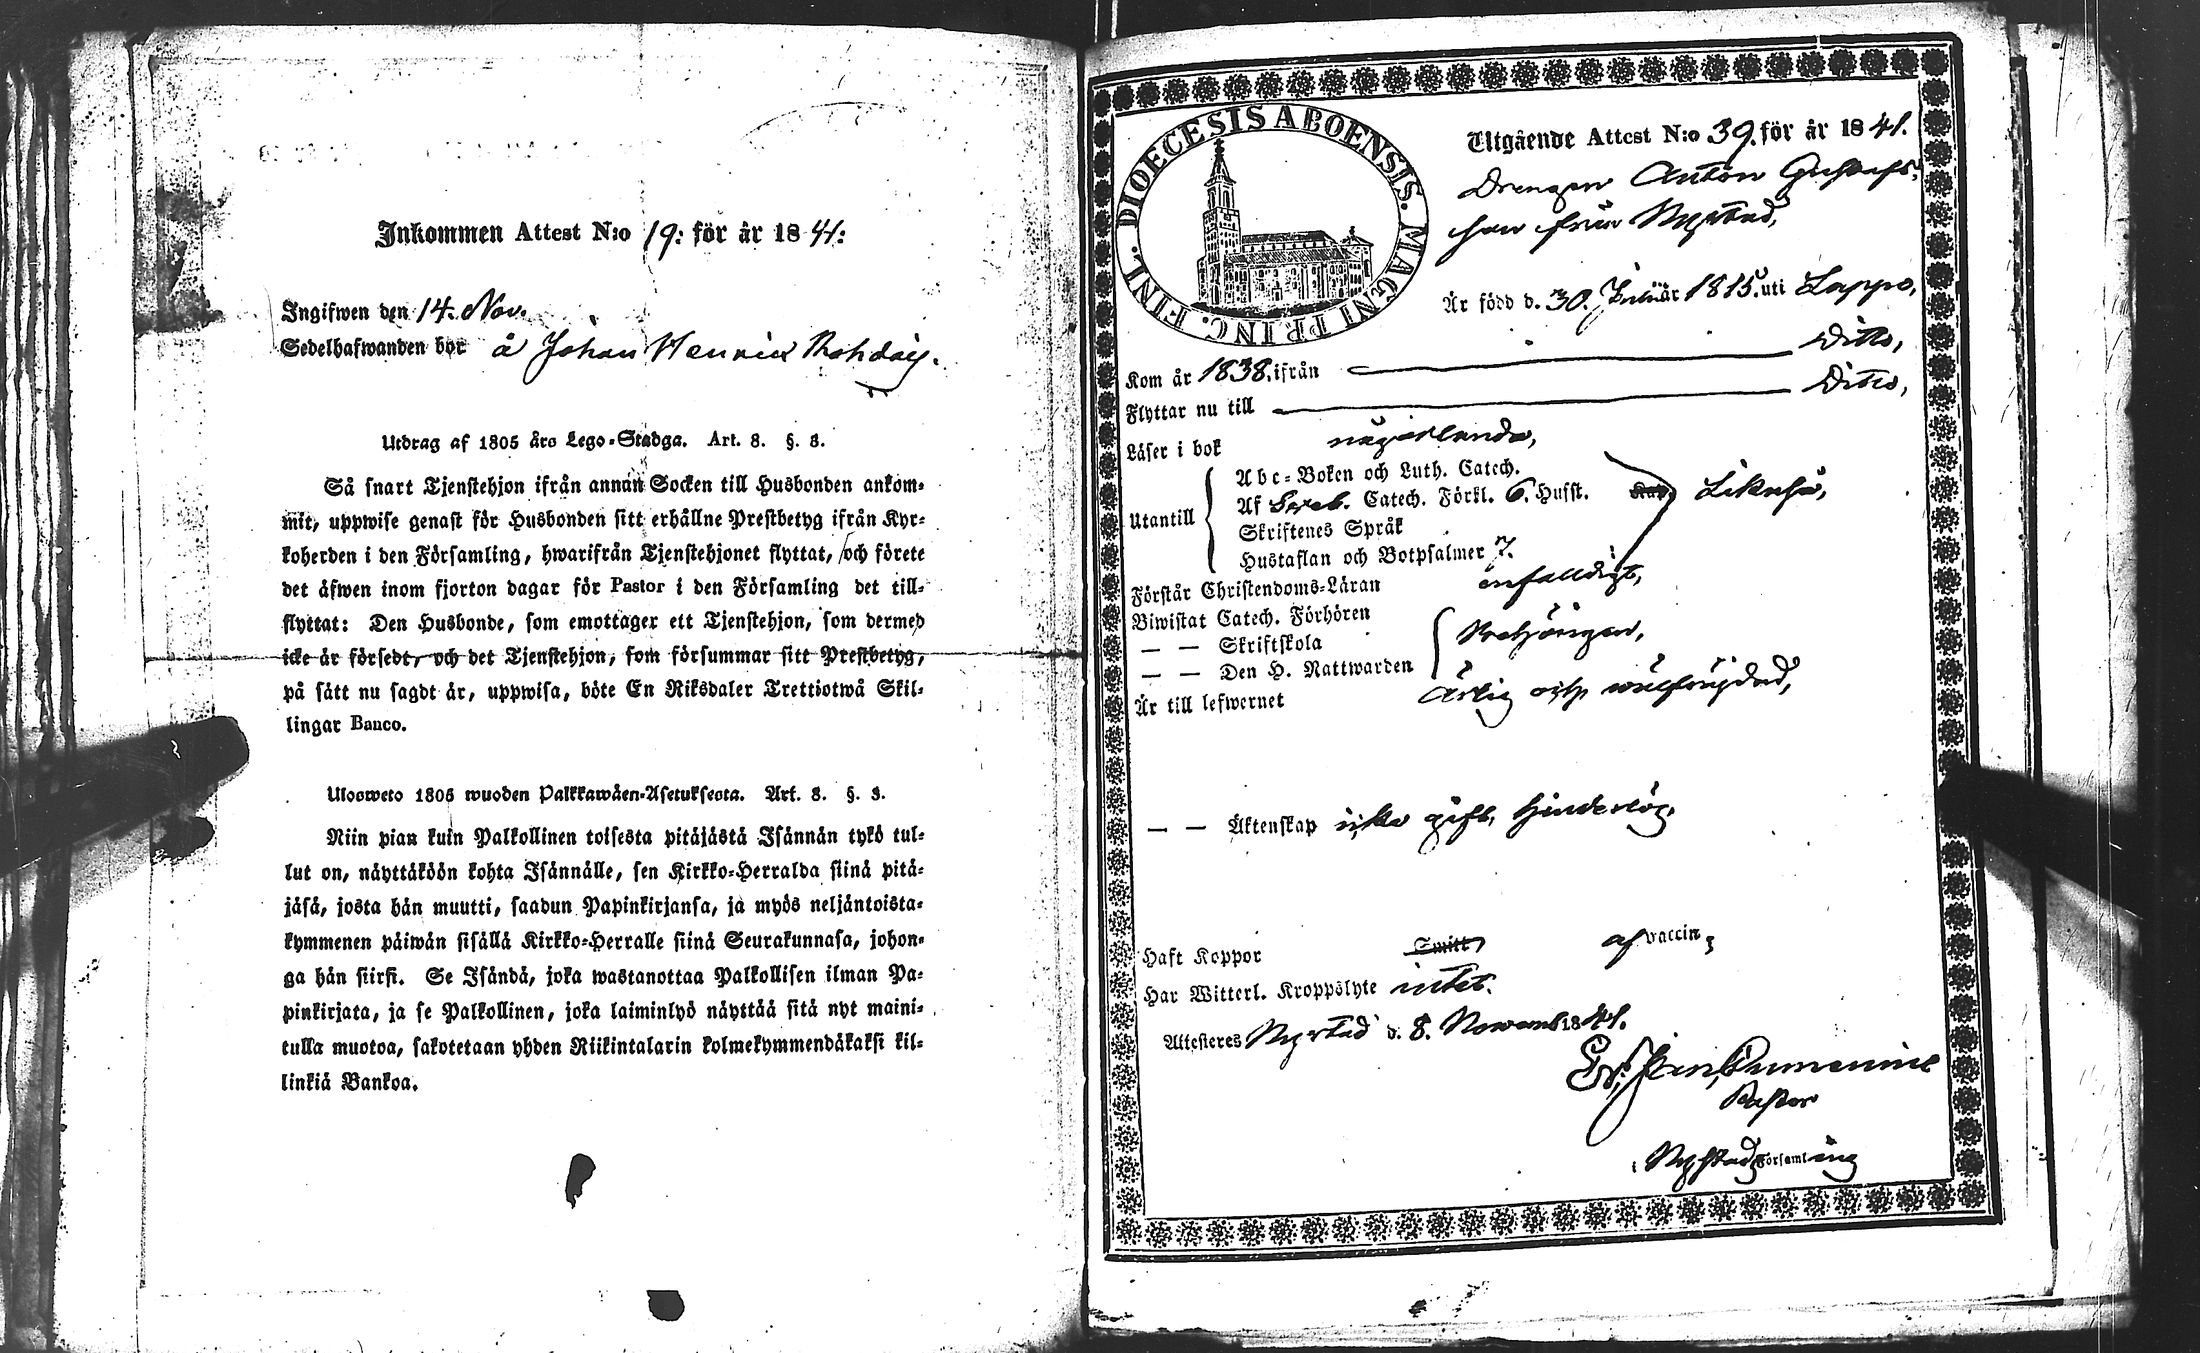 Inkommen Attest N:o 19: för år 1841:
Ingifwen den 14. Nov.
Sedelhafwanden bor å Johan Henrick
Utdrag af 1805 års Lego-Stadga. Art. 8. §. 3.
Så snart Tjenstehjon ifrån annan Socken till Husbonden ankom-
mit, uppwise genast för Husbonden sitt erhållne Prestbetyg ifrån Kyr-
koherden i den Församling, hwarifrån Tjenstehjonet flyttat, och förete
det äfwen inom fjorton dagar för Pastor i den Församling det till-
flyttat: Den Husbonde, som emottager ett Tjenstehjon, som dermed
icke är försedt, och det Tjenstehjon, som försummar sitt Prestbetyg,
på sätt nu sagdt är, uppwisa, böte En Riksdaler Trettiotwå Skil-
lingar Banco.
Ulosweto 1805 wuoden Palkkawäen-Asetuksesta. Art. 8. §. 3.
Niin pian kuin Palkollinen toisesta pitäjästä Isännän tykö tul-
lut on, näyttäköön kohta Isännälle, sen Kirkko-Herralda siinä pitä-
jäsä, josta hän muutti, saadun Papinkirjansa, ja myös neljäntoista-
kymmenen päiwän sisällä Kirkko-Herralle siinä Seurakunnasa, johon-
ga hän siirsi. Se Isändä, joka wastanottaa Palkollisen ilman Pa-
pinkirjata, ja se Palkollinen, joka laiminlyö näyttää sitä nyt maini-
tulla muotoa, sakotetaan yhden Riikintalarin kolmekymmendäkaksi kil-
linkiä Bankoa.
DIOECESIS ABOENSIS. MAGNI PRINC. FINL.
Utgående Attest N:o 39. för år 1841.
Drengen Anton Gustafs-
son från Nystad,
Är född d. 30. Januar 1815. uti Lappo,
Kom år 1838. ifrån Ditto,
Flyttar nu till Ditto,
Läser i bok någorlunda,
Utantill
Abc-Boken och Luth. Catech.
Af Sveb. Catech. Förkl. 6. Husst. Likaså,
Skriftenes Språk
Hustaflan och Botpsalmer 7.
Förstår Christendoms-Läran enfaldigt,
Biwistat Catech. Förhören
— — Skriftskola
— — Den H. Nattwarden
Är till lefwernet Ärlig och wälfrägdad,
— — Äktenskap icke gift, hinderlög.
Haft Koppor Smitt, af vaccin,
Har Witterl. Kroppslyte intet.
Attesteres Nystad d. 8. Novemb 1841.
Pastor
i Nystads Församling